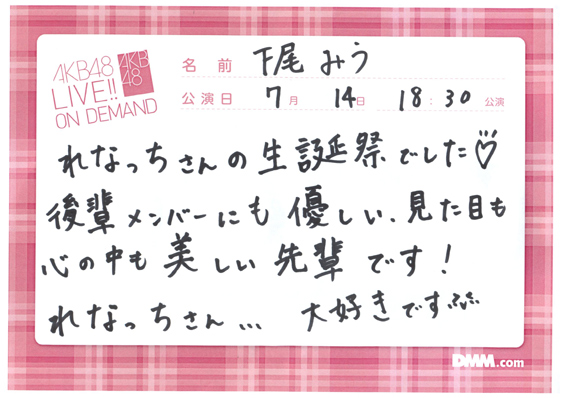 AKB48
LIVE!!
ON DEMAND
AKB
48
名前 下尾みう
公演日 7月 14日 18:30 公演
れなっちさんの生誕祭でした♡
後輩メンバーにも優しい、見た目も
心の中も美しい先輩です!
れなっちさん… 大好きです
DMM.com